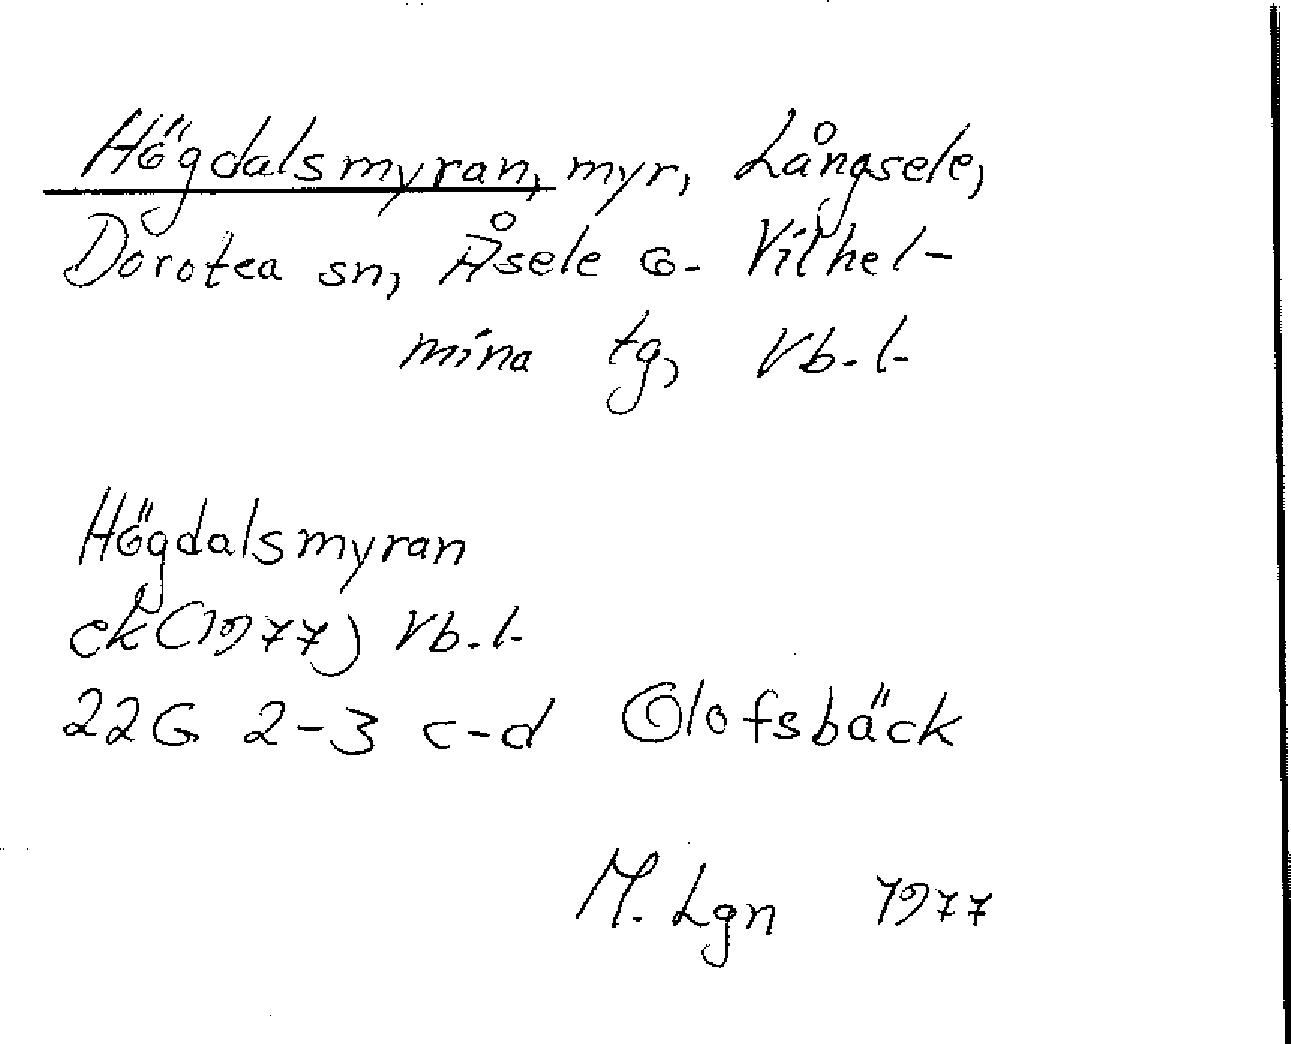 Högdalsmyran, myr, Långsele,
Dorotea sn, Åsele o. Vilhel-
mina tg, Vb. l.
Högdalsmyran
ek (1977) Vb. l.
22G 2-3 c-d Olofsbäck
M. Lgn 1977